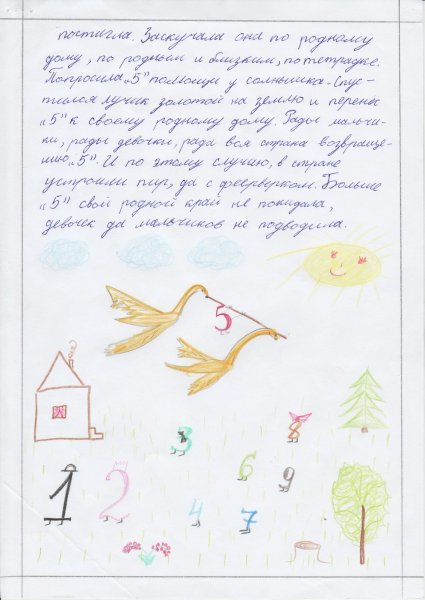 постигла. Заскучала она по родному
дому, по родным и близким, по тетрадке.
Попросила „5” помощи у солнышка. Спус-
тился лучик золотой на землю и перенёс
„5” к своему родному дому. Рады мальчи-
ки, рады девочки, рада вся страна возвраще-
нию „5”. И по этому случаю, в стране
устроили пир, да с фейерверком. Больше
„5” свой родной край не покидала,
девочек да мальчиков не подводила.
5
3
8
1
2
6
9
4
7